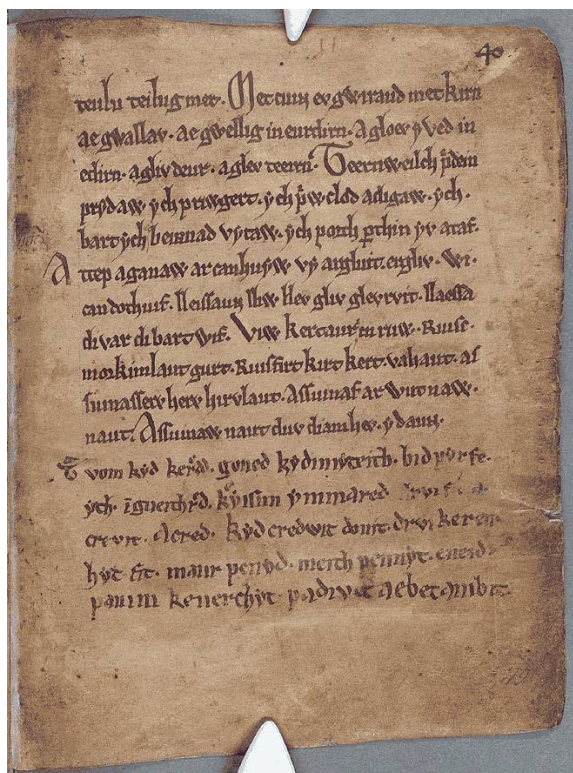 40
teulu teilug met. Met cuin ev gwiraud met kirn
ae gwallav. ae gwellig in eurdirn. A gloev yved in
edirn. a gliv deur. a glev teern. Teernweilch
prydaw ych priwgert. ych clod adigaw. ych
bart ych beirnad vytaw. ych porth perthin yv ataf.
Attep a ganaw ar canhuysw vy argluit. ergliv. Wi.
can dothuif. lleissaun lliw llev gliv glevrvit. llaessa
di var di bart wif. Viw kertaur im ruw. Ruise.
mor kimlaut gurt. Ruisfirt kirt kert vahaut. as
sumassere here hirvlaut. Assumaf ar wut naw.
naut. Assumaw naut duv diamhev. y daun.
kyd kerd. goned kydimteith. bid
ych kyissun ymmared
crevit. Acred. kyd credwit douit. drvi keren
hyt fit. maur penyd. meith pennyt. eneid.
pan im kenerchyt padivet aebet